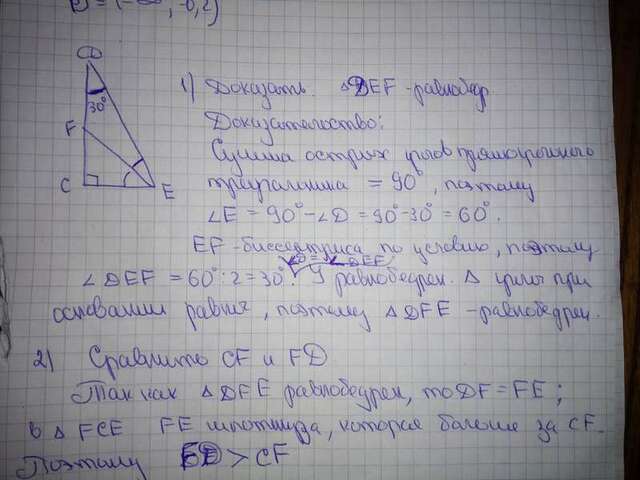 1) Доказать △DEF - равнобедр
Доказательство:
Сумма острых углов прямоугольного
треугольника = 90°, поэтому
∠E = 90° - ∠D = 90° - 30° = 60°.
EF - биссектриса по условию, поэтому
∠DEF = 60° : 2 = 30°. У равнобедрен. △ углы при
∠D = ∠DEF
основании равны, поэтому △DFE - равнобедрен.
2) Сравнить CF и FD
Так как △DFE равнобедрен, то DF = FE;
в △FCE FE гипотенуза, которая больше за CF.
Поэтому FD > CF
C F D
30°
E